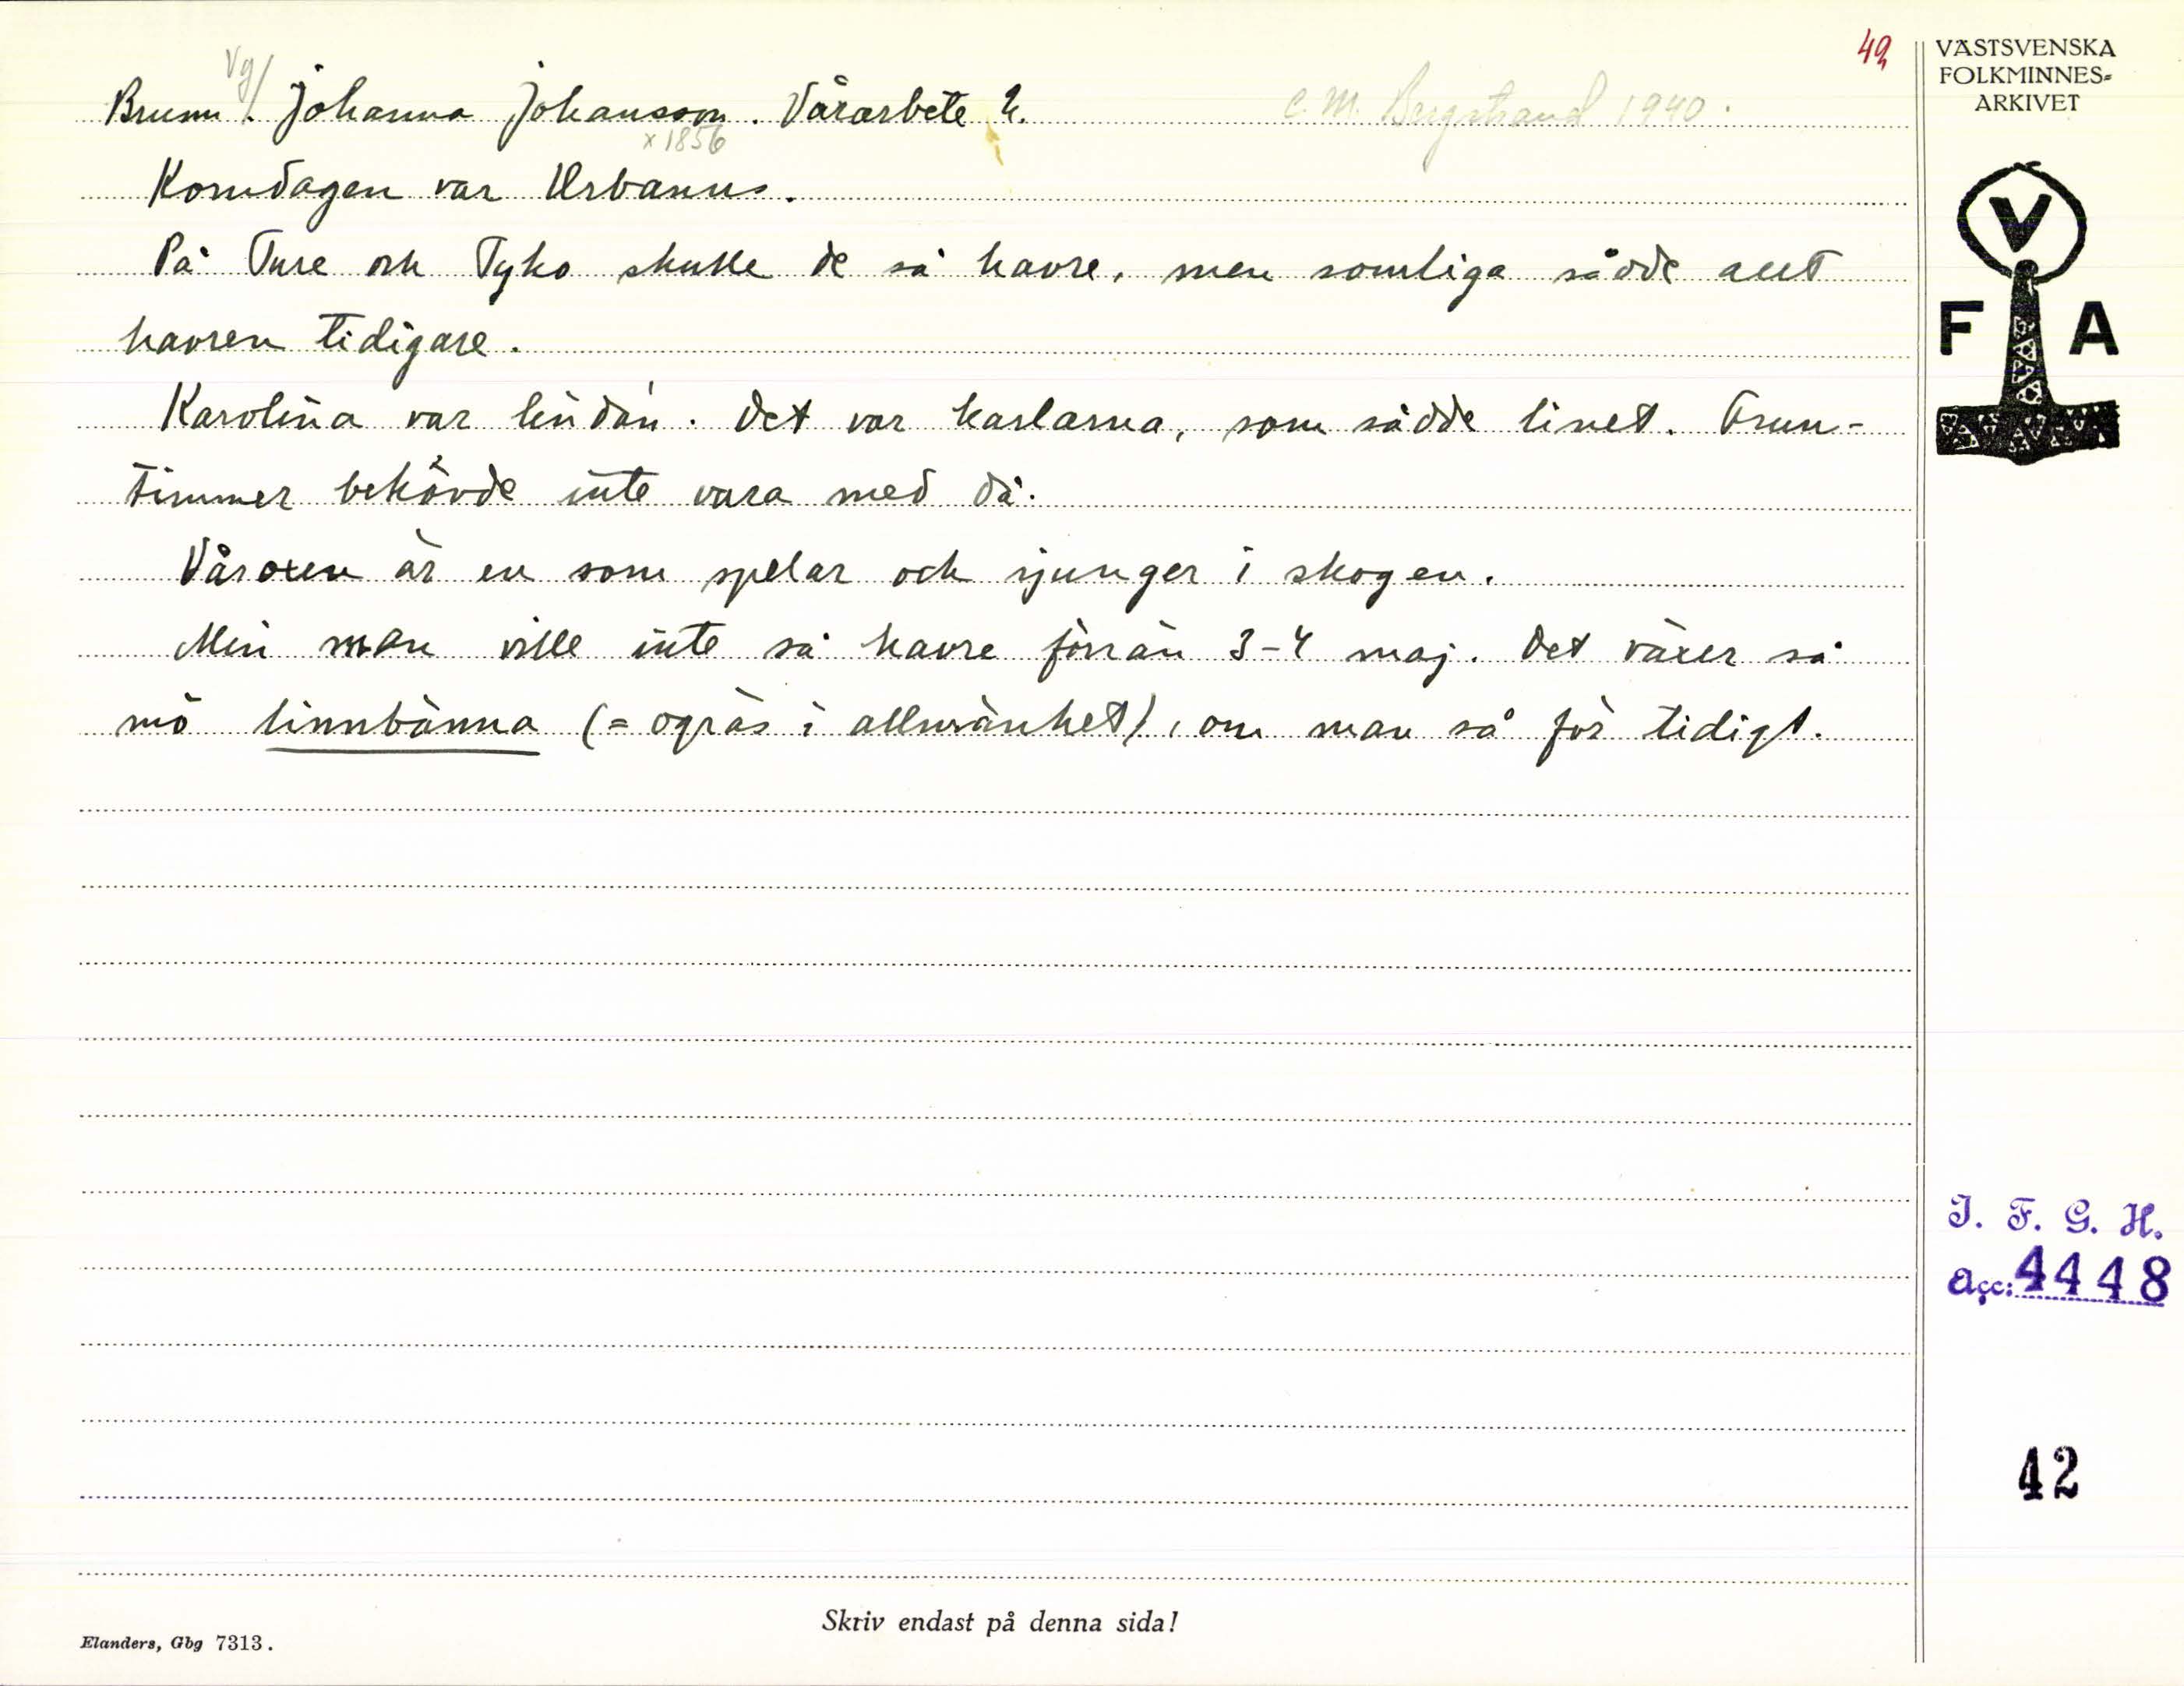 49
VÄSTSVENSKA
FOLKMINNES=
ARKIVET
Vg/
Brunn. Johanna Johansson. Vårarbete 2. C. M. Bergstrand 1940.
x 1856
Korndagen var Urbanus.
På Ture och Tyko skulle de så havre, men somliga sådde allt
havren tidigare.
Karolina var lindån. Det var karlarna, som sådde linet. Frun-
timmer behövde inte vara med då.
Våroxen är en som spelar och sjunger i skogen.
Min man ville inte så havre förrän 3-4 maj. Det växer så
mö linnbänna (= ogräs i allmänhet), om man så för tidigt.
V
F A
I. F. G. H.
Acc: 4448
42
Skriv endast på denna sida!
Elanders, Gbg 7313.